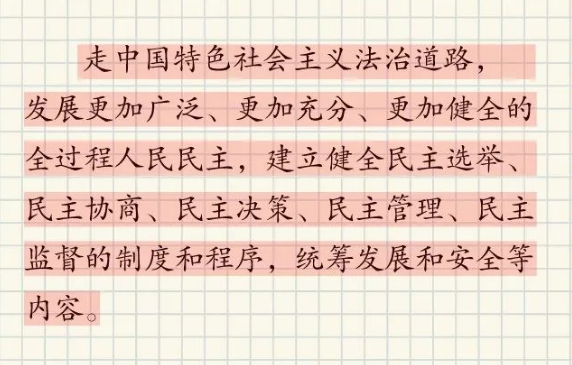 走中国特色社会主义法治道路，
发展更加广泛、更加充分、更加健全的
全过程人民民主，建立健全民主选举、
民主协商、民主决策、民主管理、民主
监督的制度和程序，统筹发展和安全等
内容。